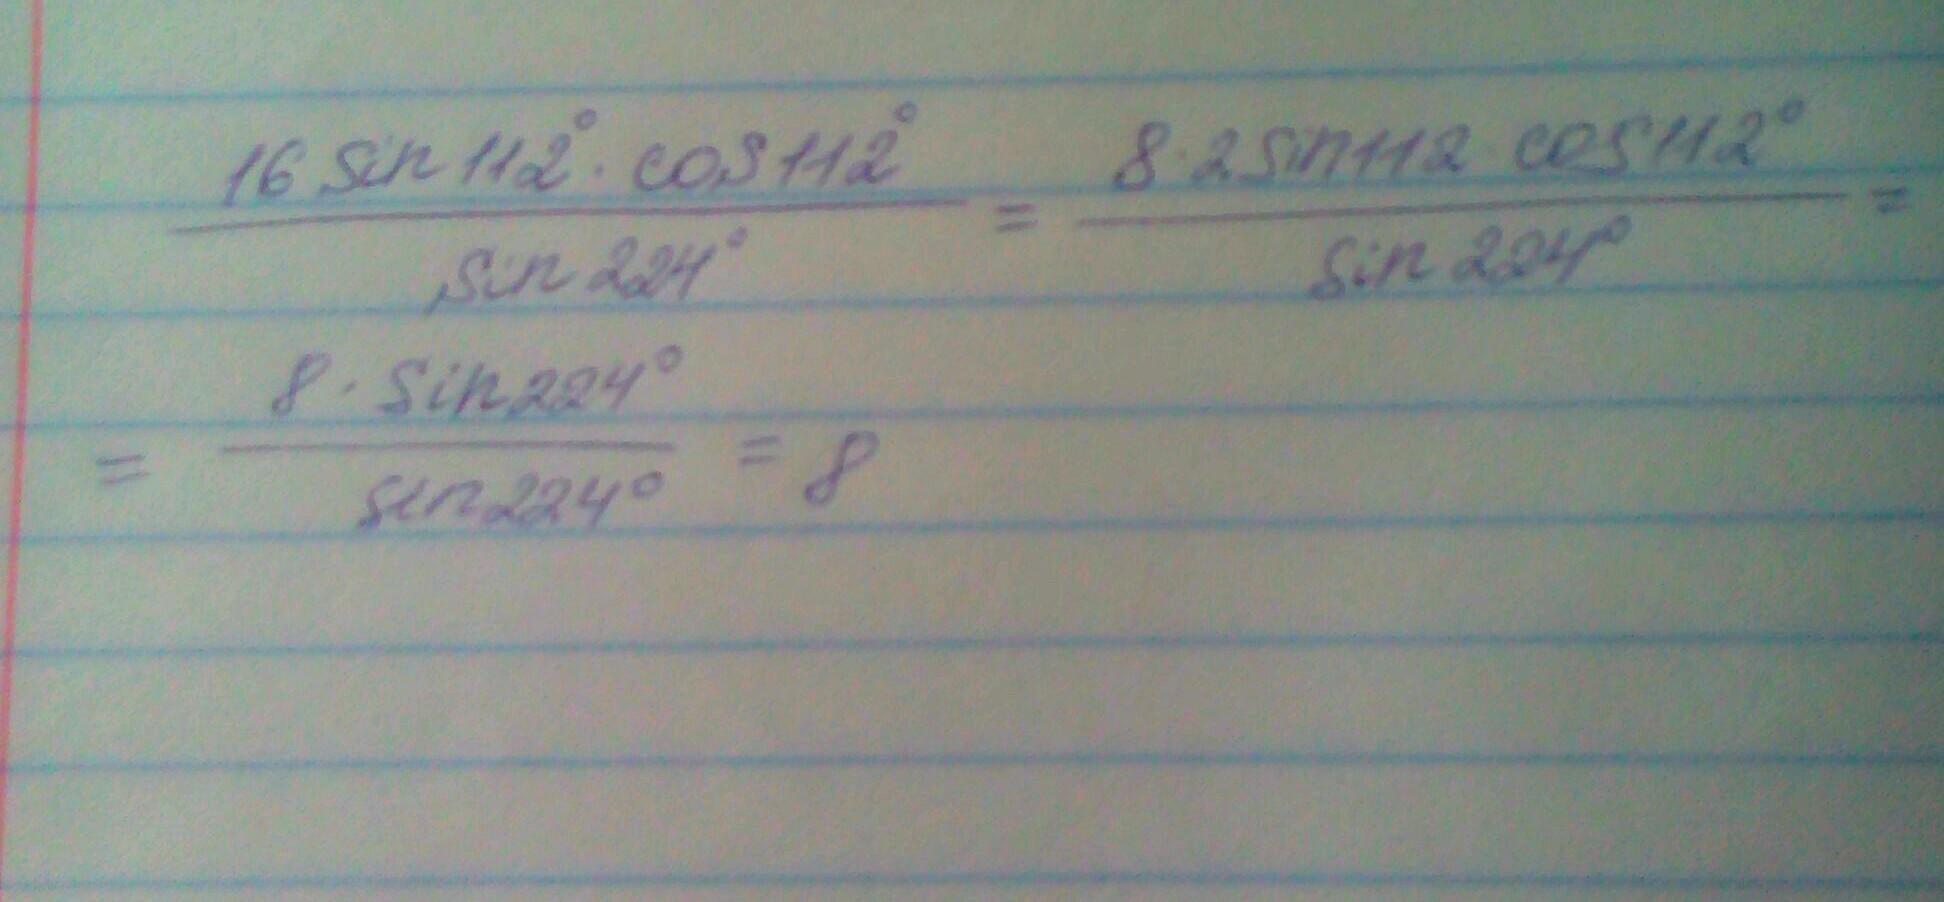 16 sin 112° · cos 112° / sin 224° = 8 · 2 sin 112 · cos 112° / sin 224° =
= 8 · sin 224° / sin 224° = 8